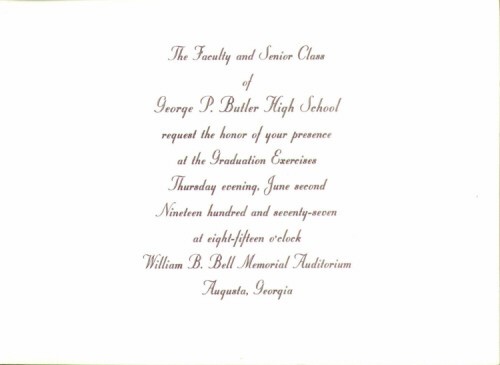 The Faculty and Senior Class
of
George P. Butler High School
request the honor of your presence
at the Graduation Exercises
Thursday evening, June second
Nineteen hundred and seventy-seven
at eight-fifteen o'clock
William B. Bell Memorial Auditorium
Augusta, Georgia